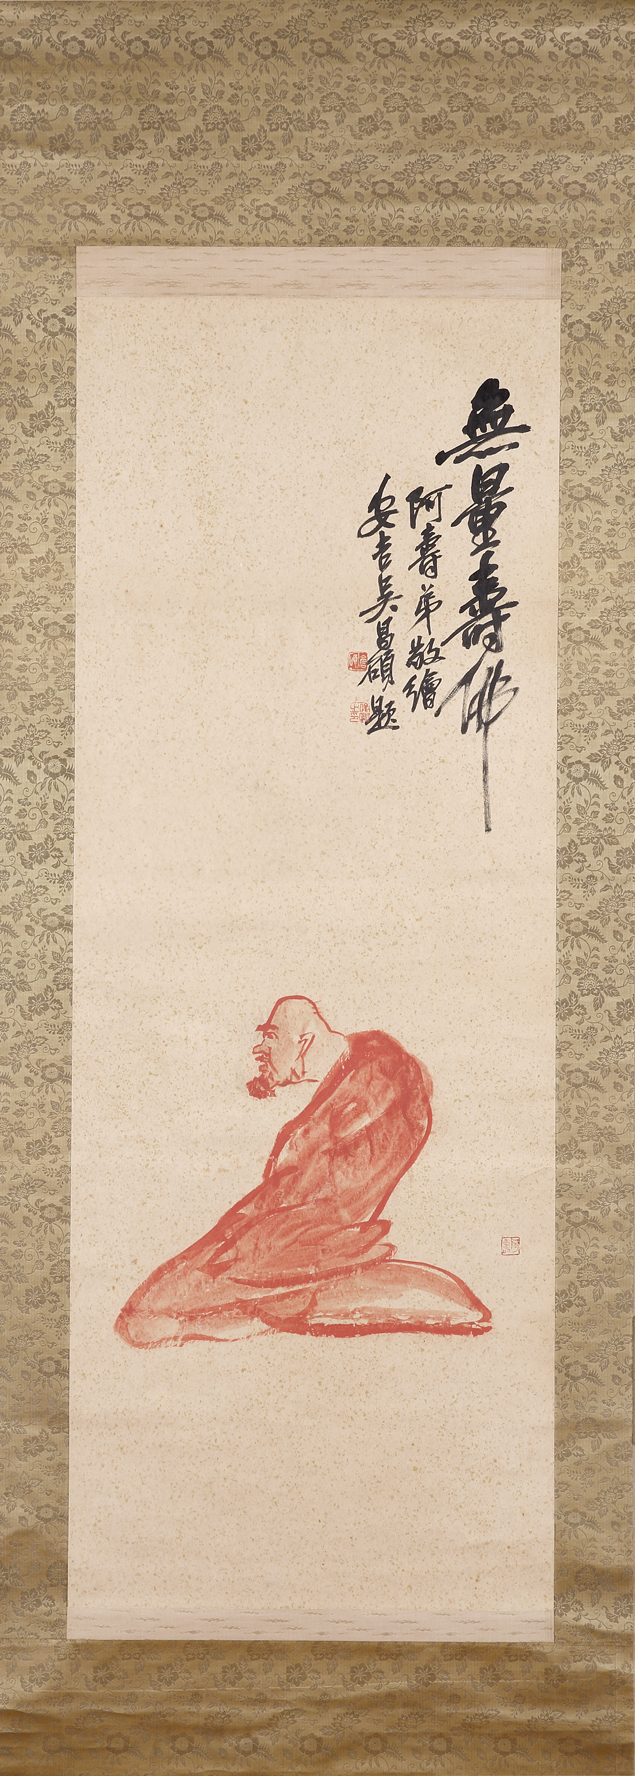 無量壽佛
阿壽弟敬繪
安吉吳昌碩題